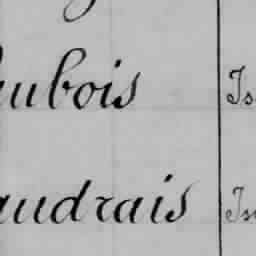 ubois Is
audrais Is